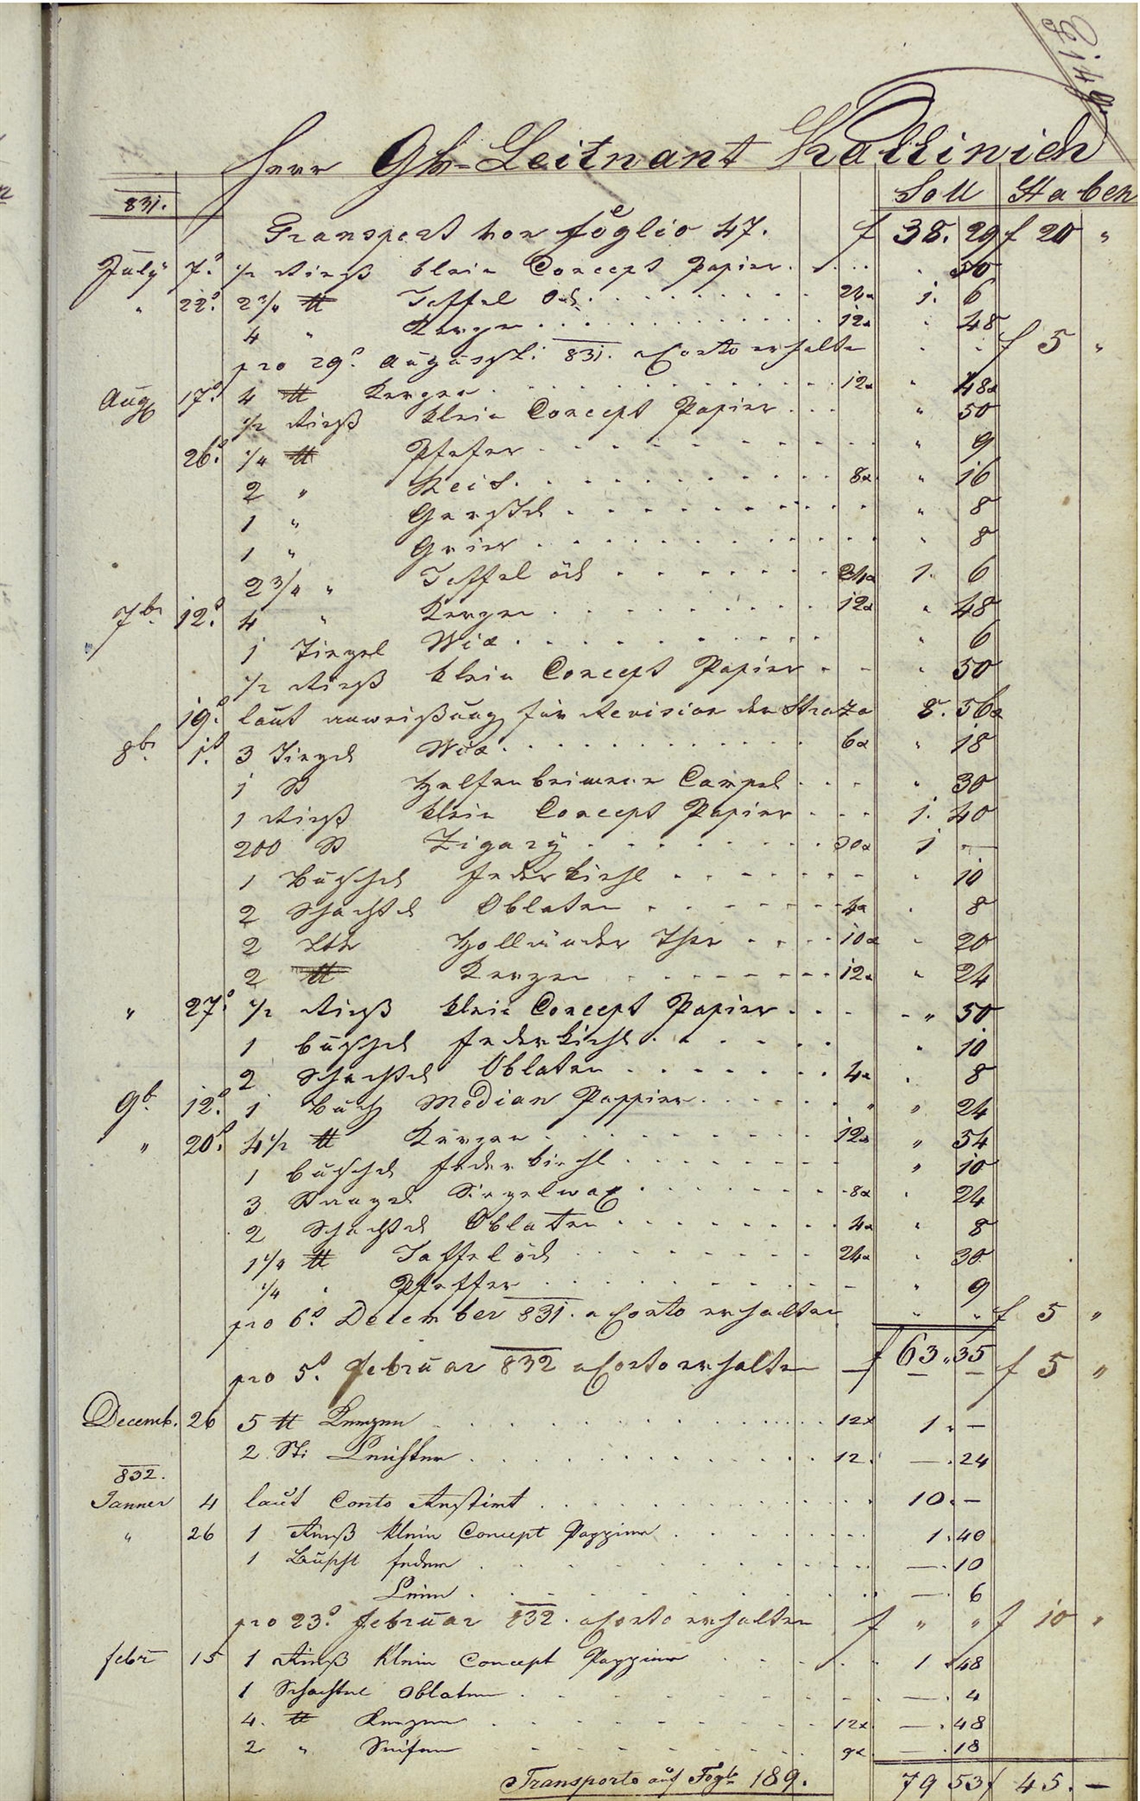 Herr Gb-Leitnant Kallinich
831.
Soll Haben
Transport von foglio 47. f 38. 29 f 20 "
July 7. 1/2 Rieß klein Concept Papier . . . . 50
" 22. 2 3/4 ℔ Taffel Oel . . . 24x 1. 6
4 " Kerzen . . . 12x " 48
pro 29. Augusti 831. a Conto erhalten . . f 5 "
Aug 17. 4 ℔ Kerzen . . . 12x " 48x
1/2 Rieß klein Concept Papier . . . " 50
26. 1/4 ℔ Pfefer . . . " 9
2 " Reis . . . 8x " 16
1 " Gerstel . . . " 8
1 " Gries . . . " 8
2 3/4 " Taffel öel . . . 24x 1. 6
7br 12. 4 " Kerzen . . . 12x " 48
1 Tiegel Wix . . . " 6
1/2 Rieß klein Concept Papier . . . " 50
19. laut anweißung für Revision der Strazza 8. 56x
8br 1. 3 Tiegel Wix . . . 6x " 18
1 St Helfenbeinerne . . . " 30
1 Rieß klein Concept Papier . . . 1. 40
200 St Zigary . . . 30x 1 —
1 Buschel Federkiehl . . . " 10
2 Schachtel Oblaten . . . 4x " 8
2 Lth Hollunder Thee . . . 10x " 20
2 ℔ Kerzen . . . 12x " 24
" 27. 1/2 Rieß klein Concept Papier . . . " 50
1 buschel Federkiehl . . . " 10
2 Schachtel Oblaten . . . 4x " 8
9br 12. 1 Buch Median Pappier . . . " " 24
" 20. 4 1/2 ℔ Kerzen . . . 12x " 54
1 buschel Federkiehl . . . " 10
3 Stangel Siegelwax . . . 8x " 24
2 Schachtel Oblaten . . . 4x " 8
1 1/4 ℔ Taffel öel . . . 24x " 30
1/4 " Pfeffer . . . " 9
pro 6. December 831. a Conto erhalten " " f 5 "
f 63. 35
pro 5. februar 832 a Conto erhalten — — f 5 "
Decemb. 26 5 ℔ Kerzen . . . 12x 1. —
2 St: Leichter . . . 12. — . 24
832.
Janner 4 laut Conto . . . 10. —
" 26 1 Rieß klein Concept Pappier . . . 1. 40
1 Buschl federn . . . — . 10
Leim . . . — . 6
pro 23. februar 832. a Conto erhalten f " " f 10 "
febr 15 1 Rieß klein Concept Pappier . . . 1. 48
1 Schachtel Oblaten . . . — . 4
4. ℔ Kerzen . . . 12x — . 48
2 " Seifen . . . 9x — . 18
Transporto auf Foglo 189. 79 53 f 45. —